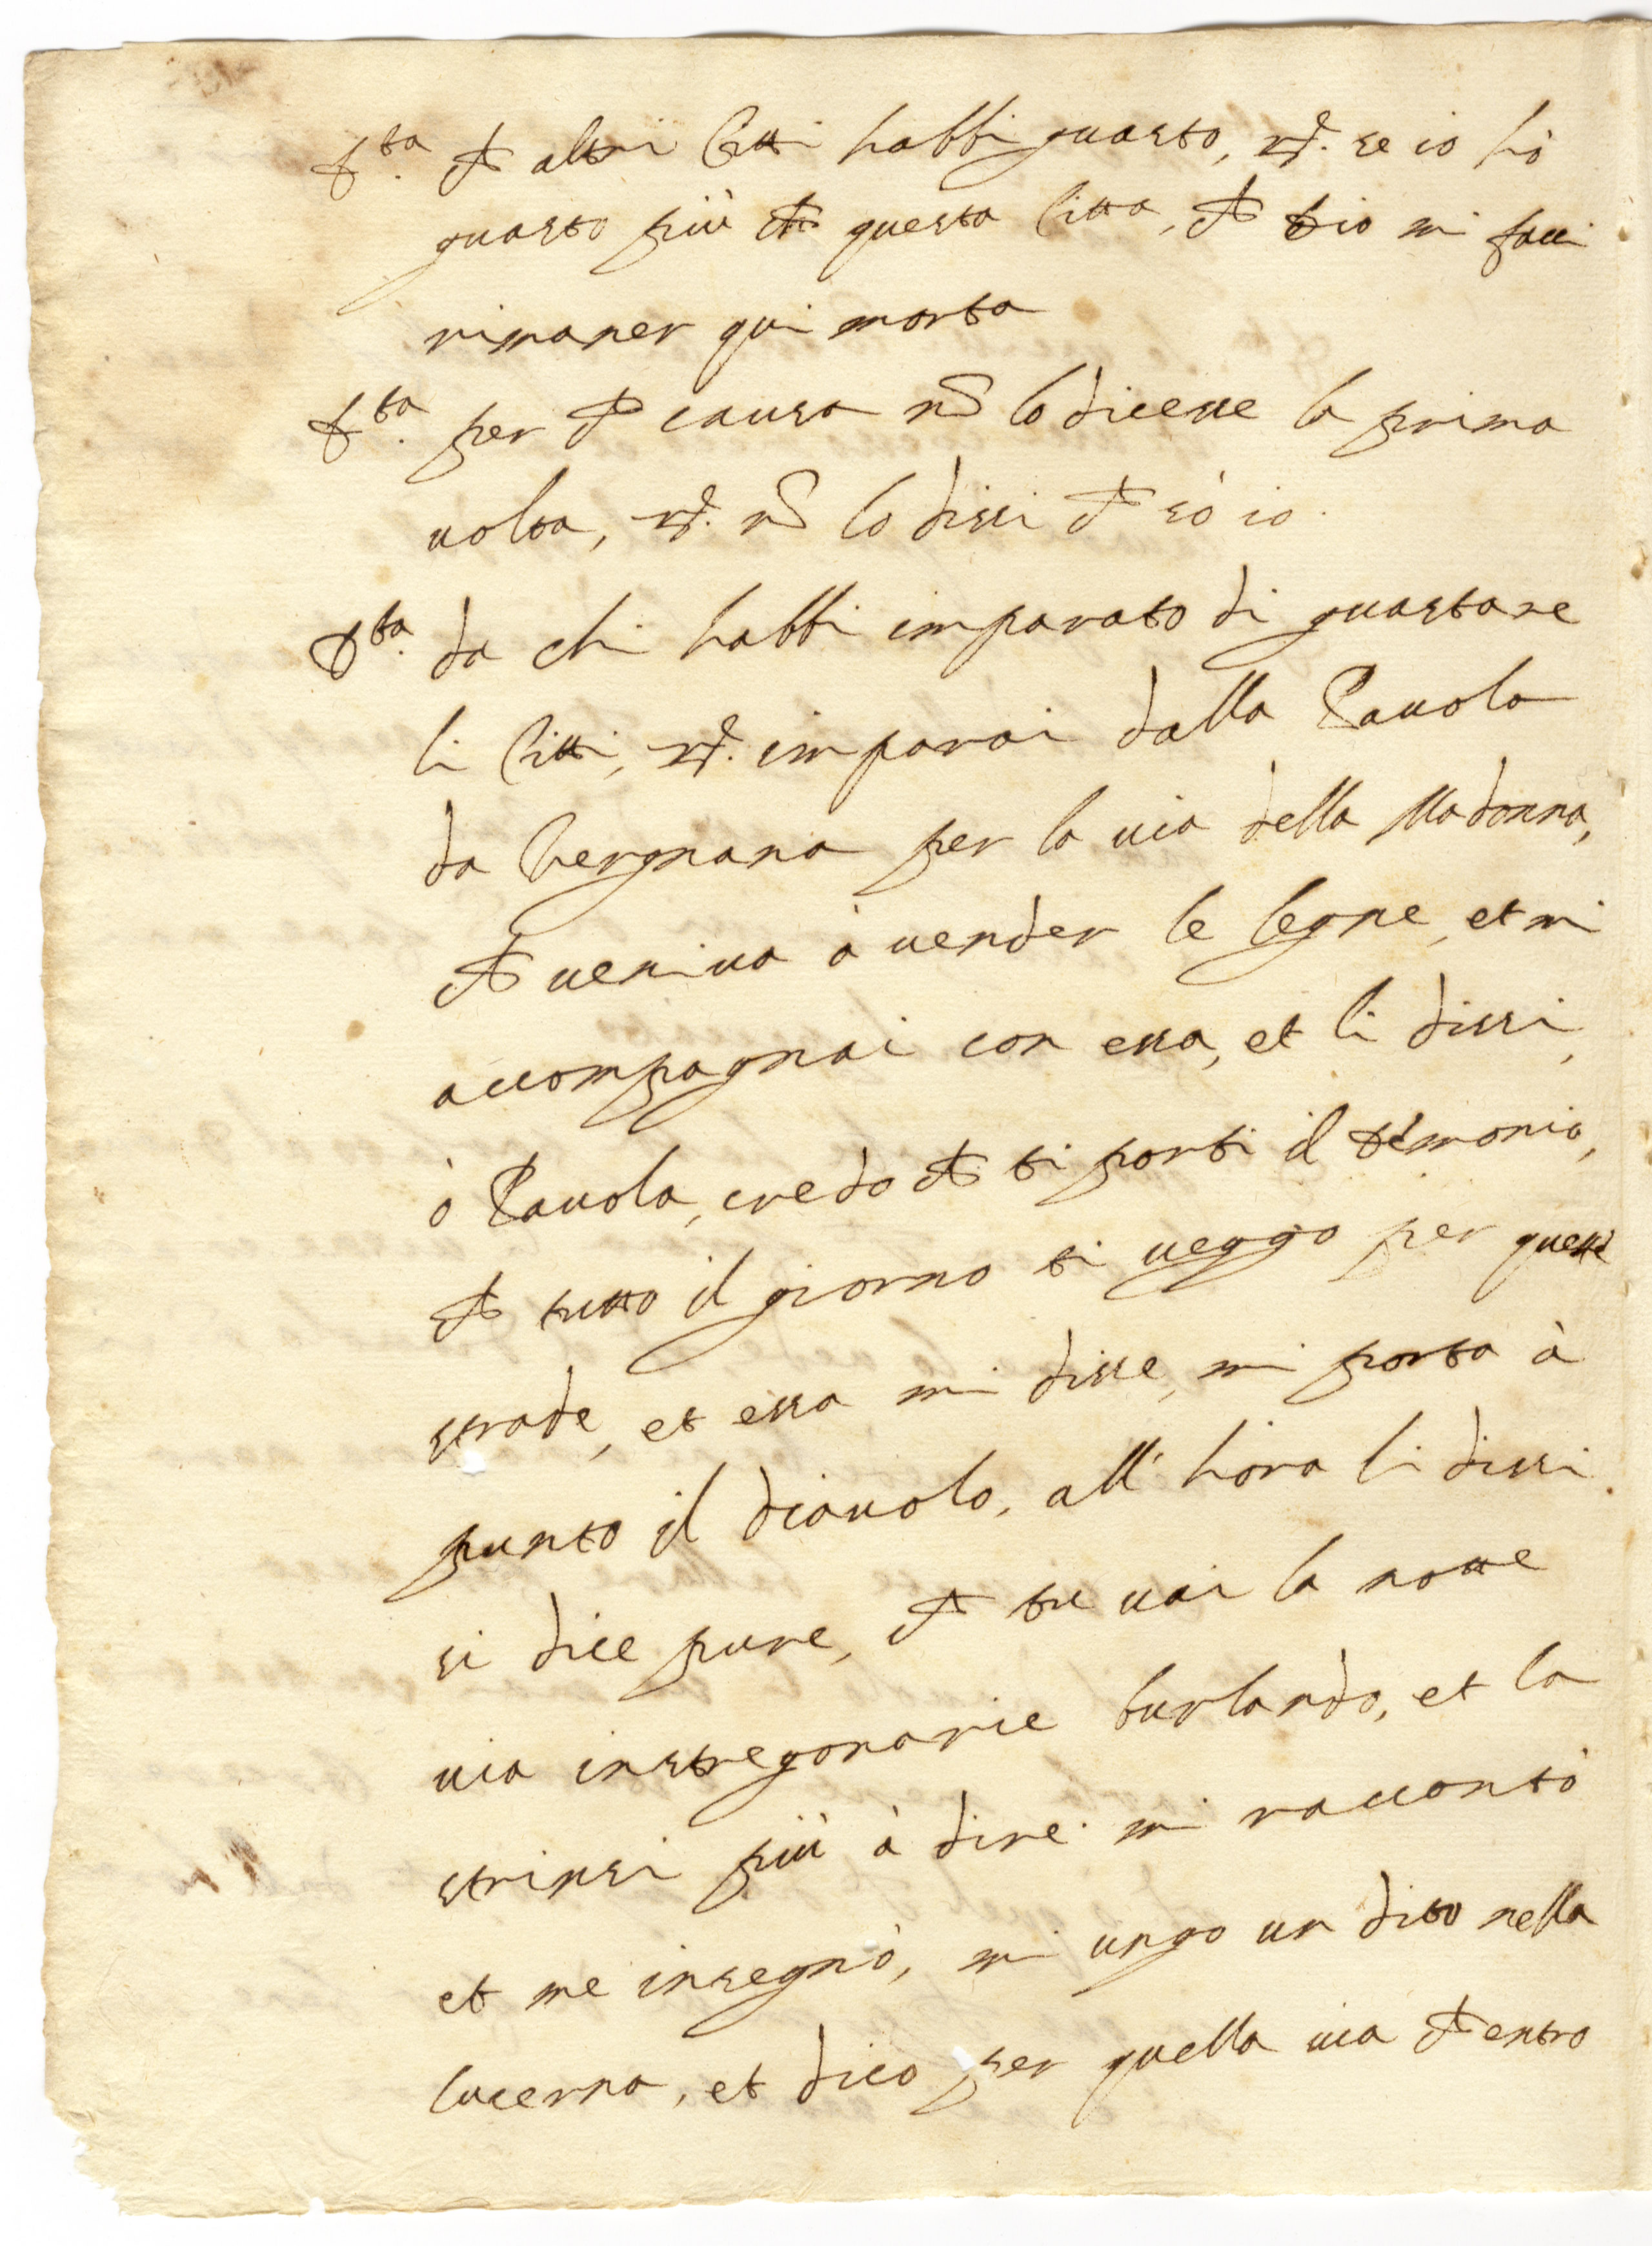 Dta. che altri Citti habbi guasto, rd. se io hò
guasto più che questa Citta, che Dio mi facci
rimaner qui morta
Dta. per che causa nō lo dicesse la prima
uolta, rd. nō lo dissi che sò io.
Dta. da chi habbi imparato di guastare
li Citti, rd. imparai dalla Pauola
da Vergnana per la uia della Madonna,
che ueniua à uender le legne, et mi
accompagnai con essa, et li dissi,
ò Pauola, credo che ti porti il demonio,
che tutto il giorno ti ueggo per queste
strade, et essa mi disse, mi porta à
punto il diauolo, all' hora li dissi
si dice pure, che tu vai la notte
uia instregonarie burlando, et la
strinsi più à dire. mi raccontò
et me insegnò, mi ungo un dito nella
lucerna, et dico per quella uia ch'entro